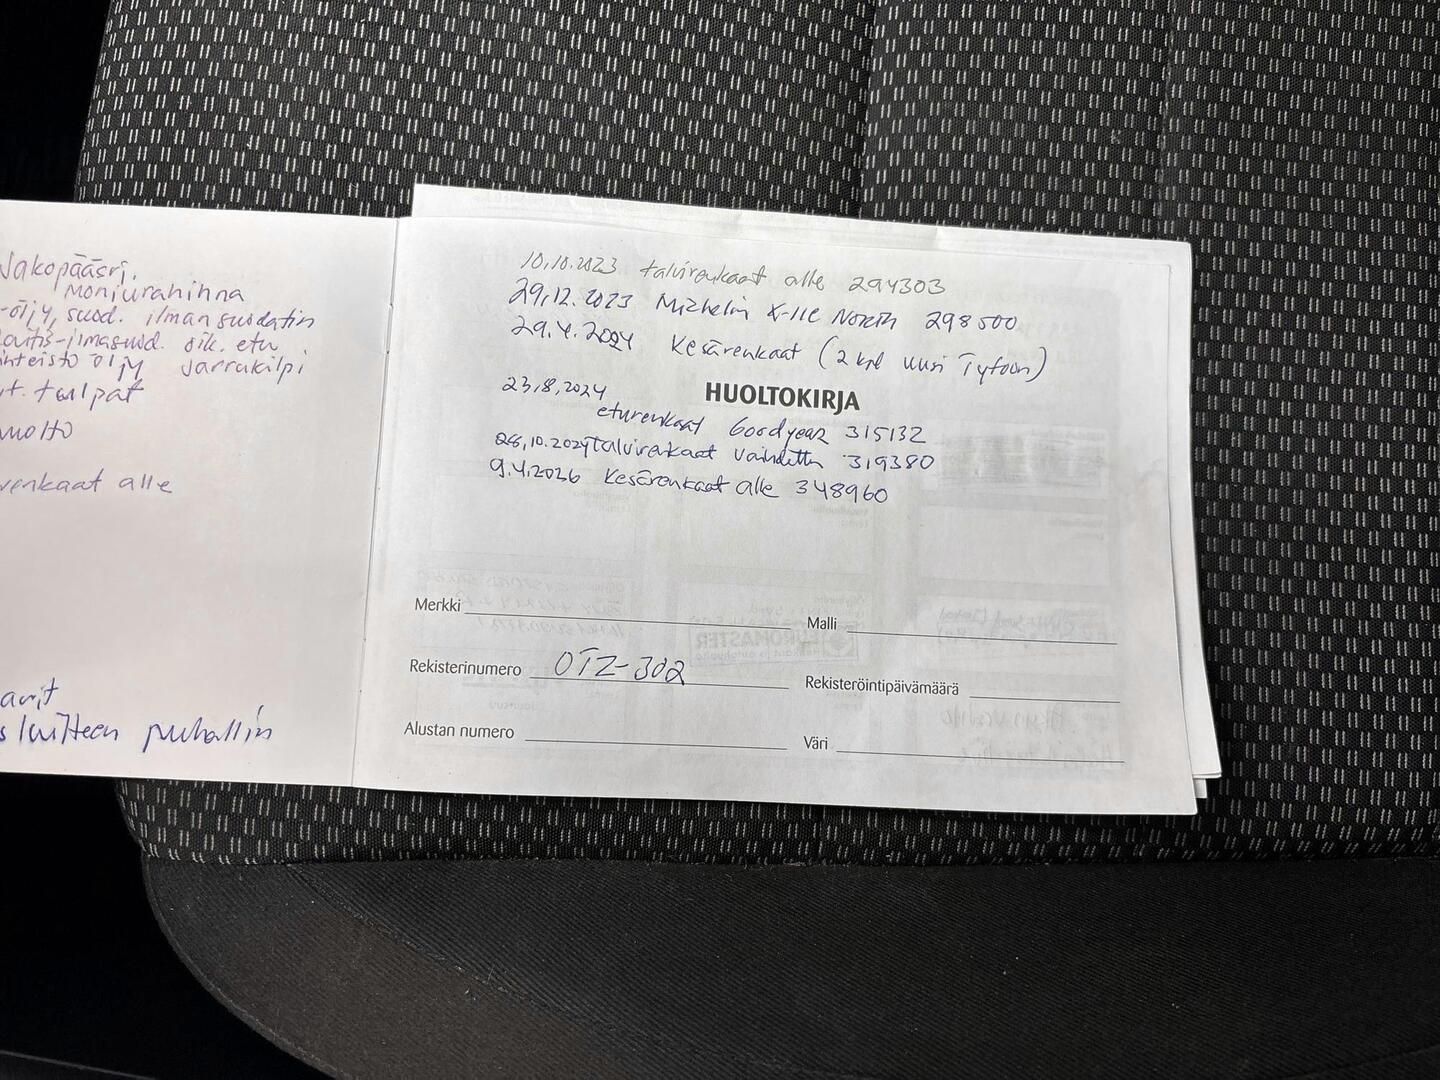 Jakopääsrj.
Moniurahihna
-öljy, suod. ilmansuodatin
-ilmasuod. sik. etu
öljy Jarrukilpi
t. tulpat
huolto
renkaat alle
puhallin
10.10.2023 talvirenkaat alle 294303
29.12.2023 Michelin X-Ice North 298500
29.4.2024 Kesärenkaat (2 kpl uusi Tyfoon)
HUOLTOKIRJA
23.8.2024
eturenkaat Goodyear 315132
28.10.2024 talvirenkaat vaihdettu 319380
9.4.2026 Kesärenkaat alle 348960
Merkki
Malli
Rekisterinumero OTZ-302
Rekisteröintipäivämäärä
Alustan numero
Väri
EUROMASTER